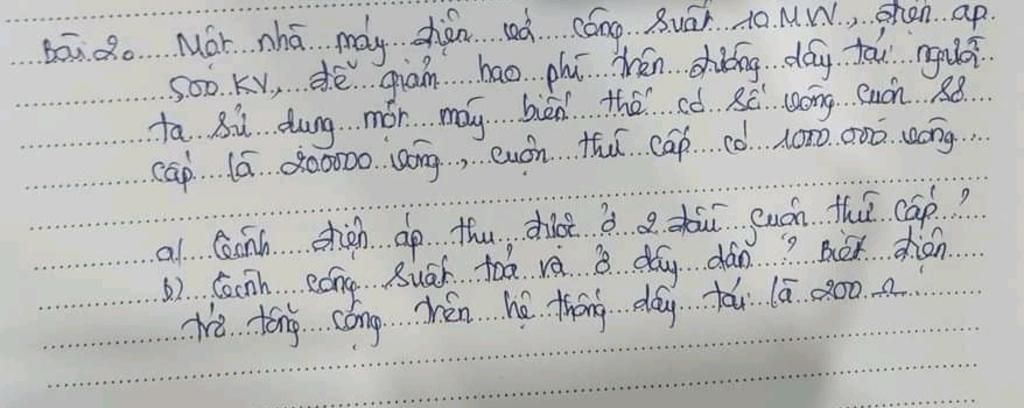 Bài 2. Một nhà máy điện có công suất 10 MW, điện áp
500 KV, để giảm hao phí trên đường dây tải người
ta sử dụng một máy biến thế có số vòng cuộn sơ
cấp là 200000 vòng, cuộn thứ cấp có 1000.000 vòng
a/ Tính điện áp thu được ở 2 đầu cuộn thứ cấp?
b) Tính công suất toả ra ở dây dẫn? Biết điện
trở tổng cộng trên hệ thống dây tải là 200 Ω